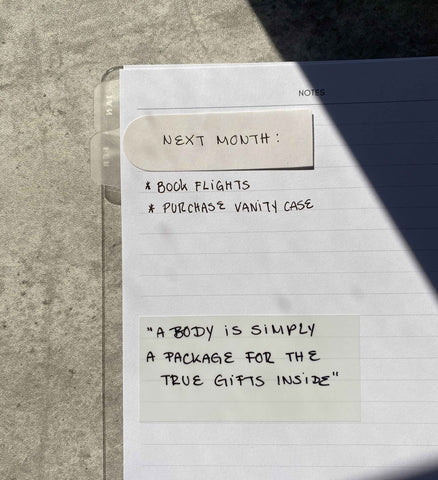 NOTES
NEXT MONTH:
* BOOK FLIGHTS
* PURCHASE VANITY CASE
"A BODY IS SIMPLY
A PACKAGE FOR THE
TRUE GIFTS INSIDE"